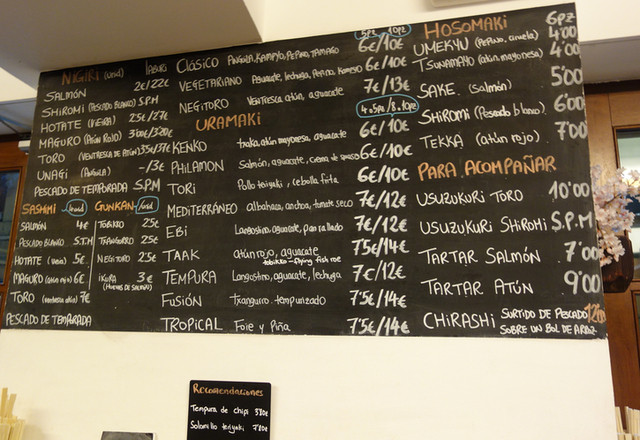 NIGIRI (und) 1ABURI
SALMÓN 2€/22€
SHIROMI (PESCADO BLANCO) S.P.M
HOTATE (VIEIRA) 2'5€/27€
MAGURO (ATÚN ROJO) 3'00€/3'20€
TORO (VENTRESCA DE ATÚN) 3'5€/37€
UNAGI (ANGUILA) -/3€
PESCADO DE TEMPORADA S.P.M
SASHIMI
SALMÓN 4€
PESCADO BLANCO S.T.M
HOTATE (vieira) 5€
MAGURO (atún rojo) 6€
TORO (ventresca atún) 7€
PESCADO DE TEMPORADA
GUNKAN
TOBIKKO 2'5€
TXANGURRO 2'5€
NEGITORO 2'5€
IKURA 3€
(HUEVAS DE SALMÓN)
5pz 10pz
CLÁSICO ANGUILA, KAMPYO, PEPINO, TAMAGO 6€/10€
VEGETARIANO Aguacate, lechuga, Pepino, Kampyo 6€/10€
NEGITORO Ventresca atún, aguacate 7€/13€
URAMAKI 4o5pz/8o10pz
KENKO tataki atún mayonesa, aguacate 6€/10€
PHILAMON Salmón, aguacate, crema de queso 6€/10€
TORI Pollo teriyaki, cebolla frita 6€/10€
MEDITERRÁNEO albahaca, anchoa, tomate seco 7€/12€
EBI Langostino, aguacate, pan rallado 7€/12€
TAAK atún rojo, aguacate 7'5€/14€
tobikko - flying fish roe
TEMPURA Langostino, aguacate, lechuga 7€/12€
FUSIÓN txangurro tempurizado 7'5€/14€
TROPICAL Foie y Piña 7'5€/14€
HOSOMAKI 6pz
UMEKYU (Pepino, ciruela) 4'00
TSUNAMAYO (atún, mayonesa) 4'00
SAKE (salmón) 5'00
SHIROMI (Pescado blanco) 6'00
TEKKA (atún rojo) 7'00
PARA ACOMPAÑAR
USUZUKURI TORO 10'00
USUZUKURI SHIROMI S.P.M.
TARTAR SALMÓN 7'00
TARTAR ATÚN 9'00
CHIRASHI SURTIDO DE PESCADO 12'00
SOBRE UN BOL DE ARROZ
Recomendaciones
Tempura de chipi 5'80€
Solomillo teriyaki 7'80€